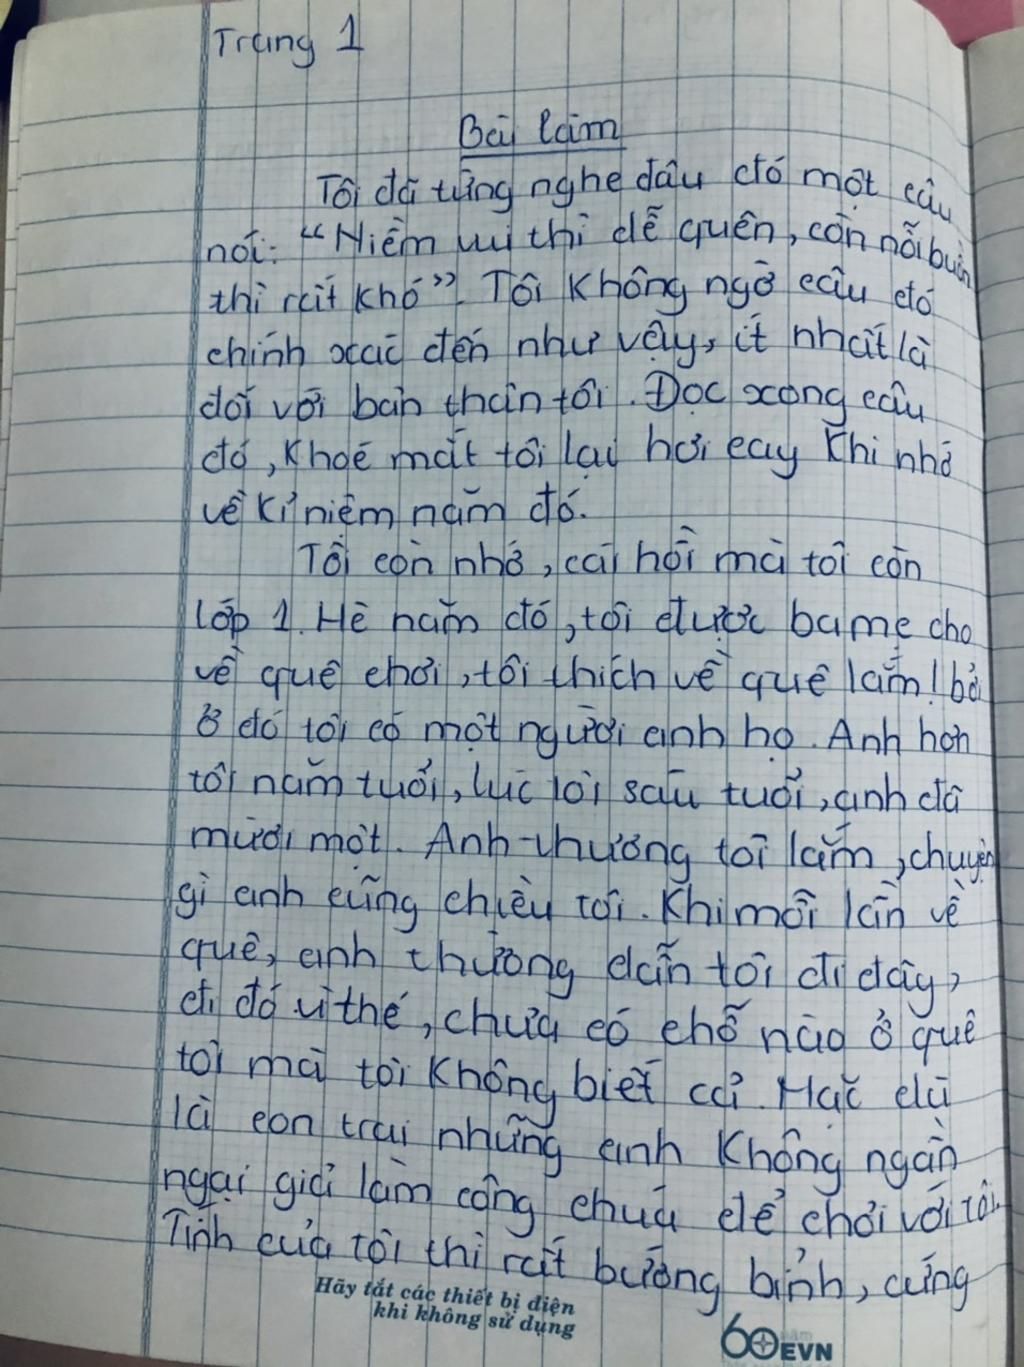 Trang 1
Bài làm
Tôi đã từng nghe đâu đó một câu
nói: "Niềm vui thì dễ quên, còn nỗi buồn
thì rất khó". Tôi không ngờ câu đó
chính xác đến như vậy, ít nhất là
đối với bản thân tôi. Đọc xong câu
đó, khoé mắt tôi lại hơi cay khi nhớ
về kỉ niệm năm đó.
Tôi còn nhớ, cái hồi mà tôi còn
lớp 1. Hè năm đó, tôi được ba mẹ cho
về quê chơi, tôi thích về quê lắm! bởi
ở đó tôi có một người anh họ. Anh hơn
tôi năm tuổi, lúc tôi sáu tuổi, anh đã
mười một. Anh thương tôi lắm, chuyện
gì anh cũng chiều tôi. Khi mỗi lần về
quê, anh thường dẫn tôi đi đây,
đi đó vì thế, chưa có chỗ nào ở quê
tôi mà tôi không biết cả. Mặc dù
là con trai nhưng anh không ngần
ngại giả làm công chúa để chơi với tôi.
Tính của tôi thì rất bướng bỉnh, cứng
Hãy tắt các thiết bị điện
khi không sử dụng
60 năm EVN